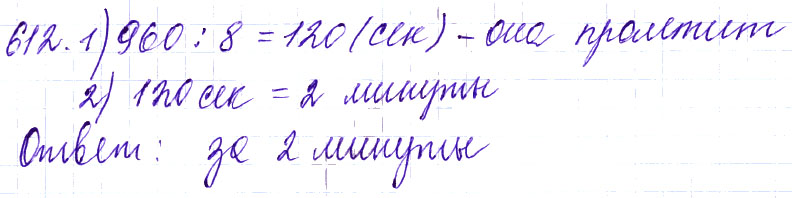 612. 1) 960 : 8 = 120 (сек) – она пролетит
2) 120 сек = 2 минуты
Ответ: за 2 минуты